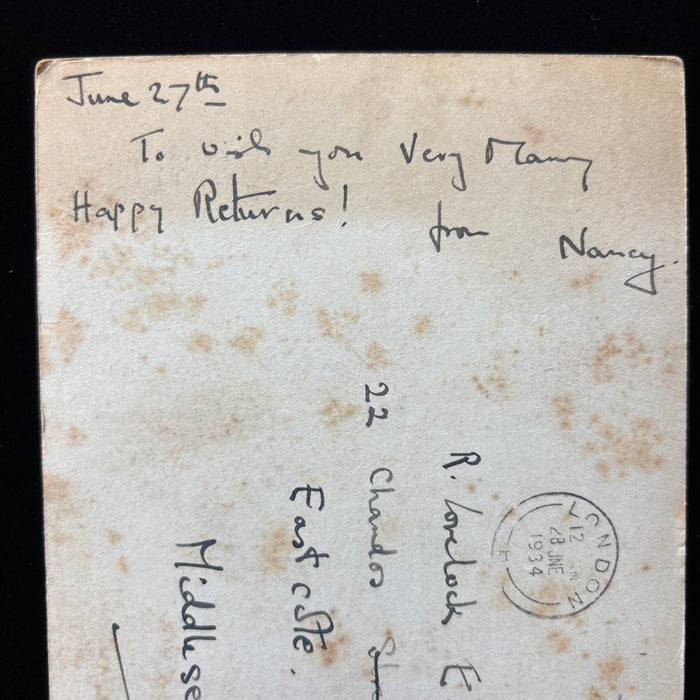 June 27th
To wish you Very Many
Happy Returns!
from Nancy.
R. Lovelock E
22 Chandos
Eastcote.
Middlese
LONDON
12
28 JNE
1934